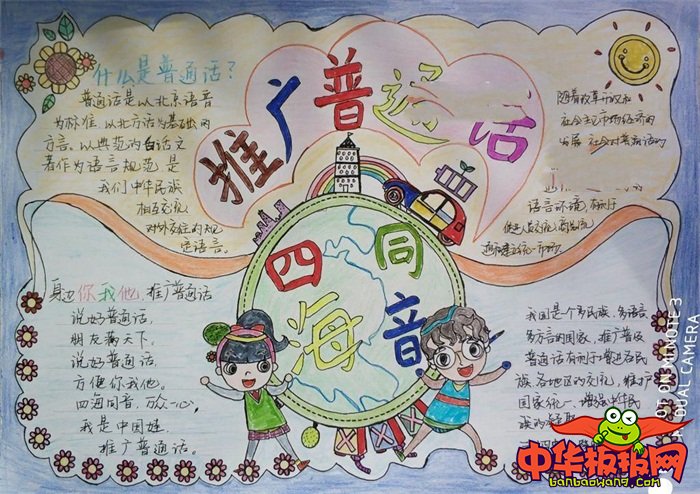 推广普通话
什么是普通话?
普通话是以北京语音
为标准,以北方话为基础的
方言,以典范的白话文
著作为语言规范,是
我们中华民族
相互交流,
对外交往的规
定语言。
随着改革开放和
社会主义市场经济的
发展 社会对普通话的
语言环境,有利于
促进人员交流,商品流
通和建立统一市场
四海
同音
身边你我他,推广普通话
说好普通话,
朋友满天下,
说好普通话,
方便你我他。
四海同音,万众一心,
我是中国娃
推广普通话。
我国是个多民族,多语言,
多方言的国家,推广普及
普通话有利于增进各民
族、各地区的交流,维护
国家统一,增强中华民
族的
ON MI NOTE 3
DUAL CAMERA
中华板报网
banbaowang.com